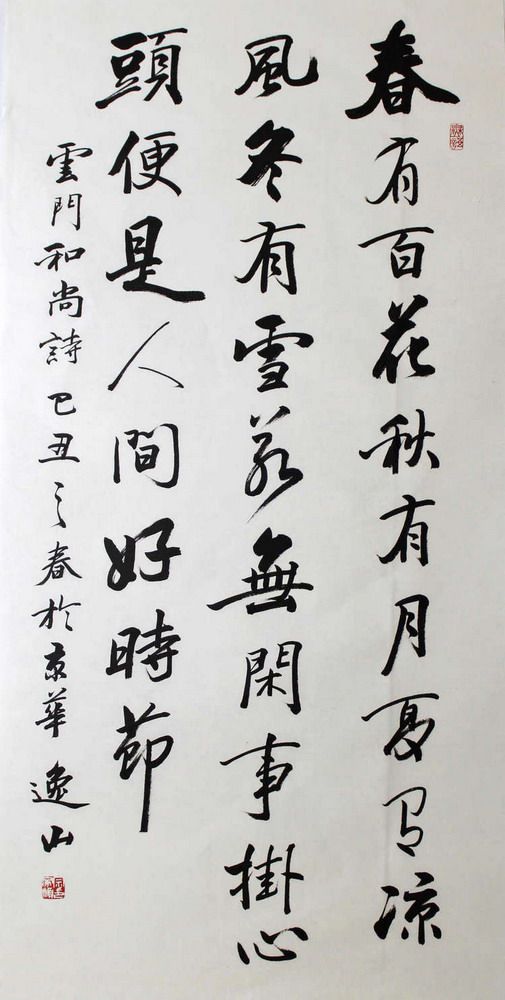 春有百花秋有月夏有凉
風冬有雪若無閑事掛心
頭便是人間好時節
雲門和尚詩 己丑之春於京華 逸山